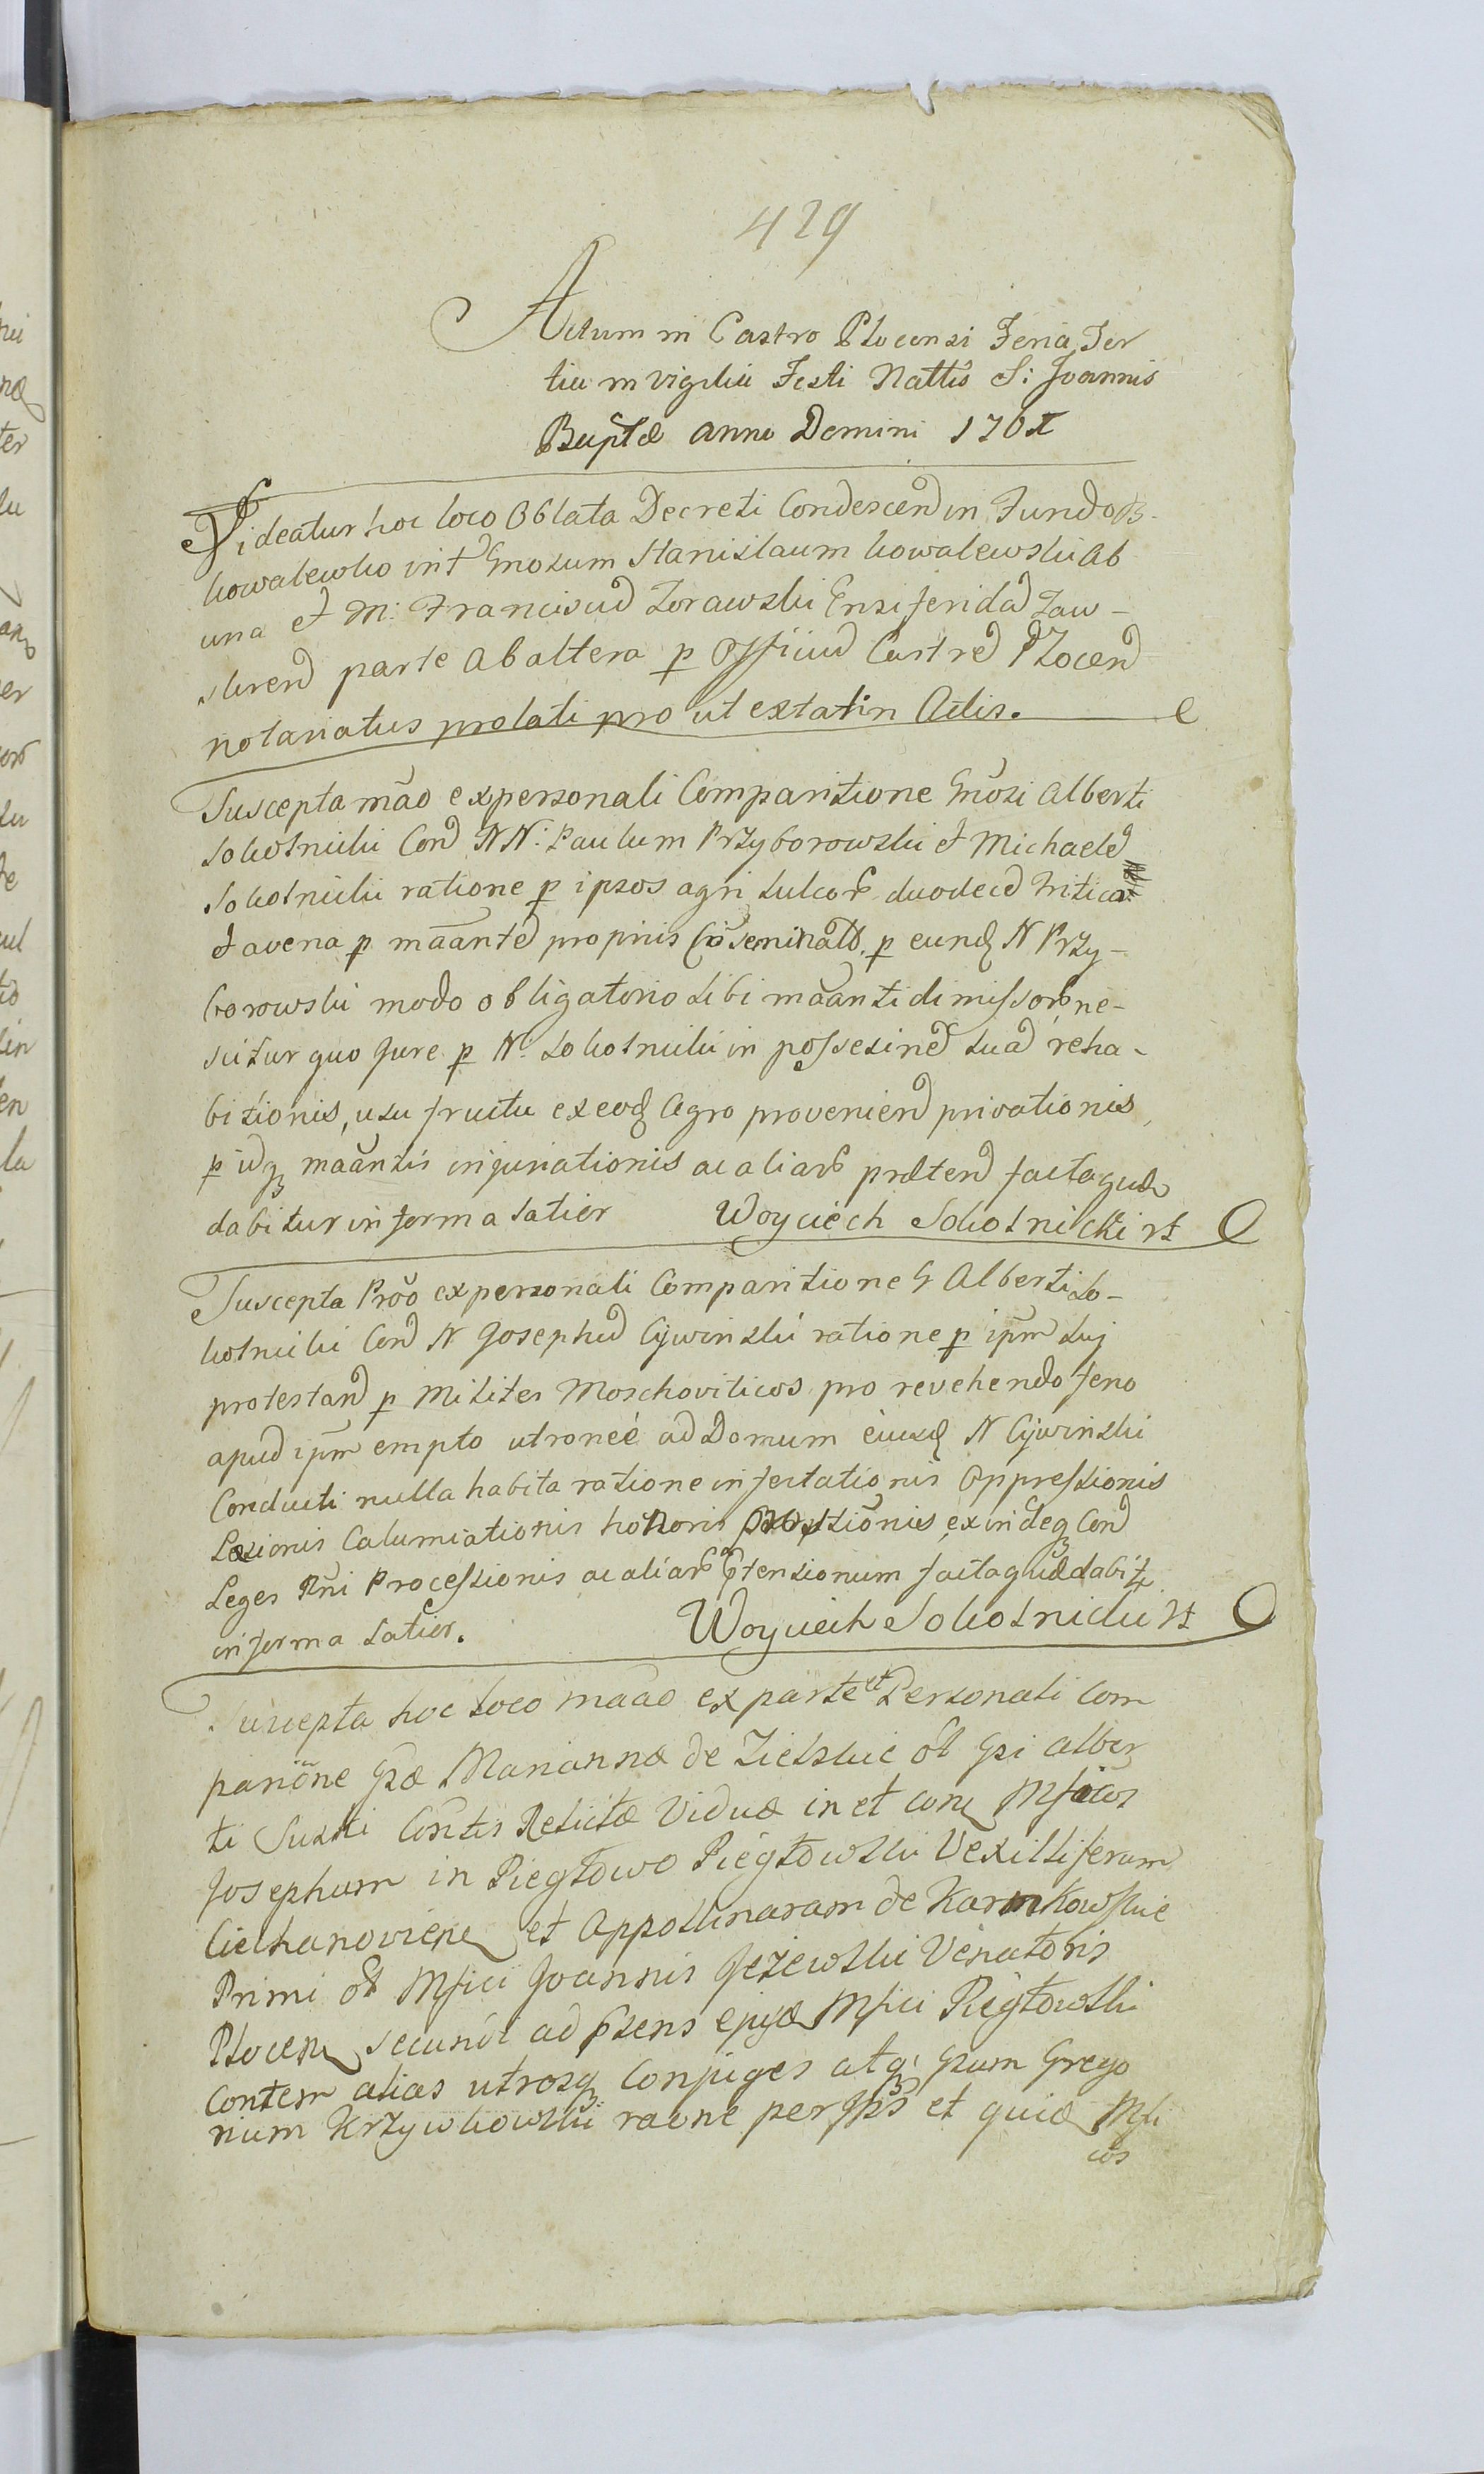 429
Actum in Castro Plocensi Feria Ter
tia in vigilia Festi Nattis S: Joannis
Baptæ anno Domini
Videatur hoc loco Oblata Decreti Condescend in Fundo B.
Kowalewko int Gnosum Stanislaum Kowalewski ab
una et M: Franciscu Zorawski Ensiferida Zaw-
skrend parte ab altera p Officiu Castred Plocend
notariatus prolati pro ut extat in Actis.
Suscepta mão ex personali Comparitione Gnõsi Alberti
Sokolnicki Con NN: Paulum Przyborowski et Michaele
Sokolnicki ratione p ipsos agri sulcor duodeci tritico
et avena p mãante propriis seminatō p eund N Przy-
borowski modo obligatorio sibi mãanti dimissor ne-
scitur quo Jure p N: Sokolnicki in possesione sua reha-
bitionis, usu fructu ex eod Agro proveniend privationis,
p idq mãantis injuriationis ac aliar prætend facta quæ
dabitur in forma latior Woyciech Sokolnicki rt
Suscepta Prõo ex personali Comparitione G Alberti So-
kolnicki Con N Josephu Cywinski ratione p ipm suj
protestand p Milites Moschoviticos pro revehendo feno
apud ipm empto utroneé ad Domum eiusd N Cywinski
Conducti nulla habita ratione infestationis Oppressionis
Læsionis Calumiationis honoris exindeq Con
Leges Rni Processionis ac aliar ptensionum facta quæ dabitr
in forma latior. Woyciech Sokolnicki rt
Suscepta hoc loco mãao ex parte et Personali Com
pariõne Gsæ Mariannæ de Zielskie ol Gsi Alber
ti Suski Contis Relictæ Viduæ in et con Mficos
Josephum in Pięgłowo Pięgłowski Vexilliferum
Ciechanovien et Appollinaram de Karnkowskie
Primi ol Mfici Joannis Jezewski Venatoris
Plocen secundi ad psens ejusd Mfici Pięgłowski
Contem alias utrosq Conjuges atq Gsum Grego
rium Krzywkowski raone per Ipsos et quid Mfi
cos